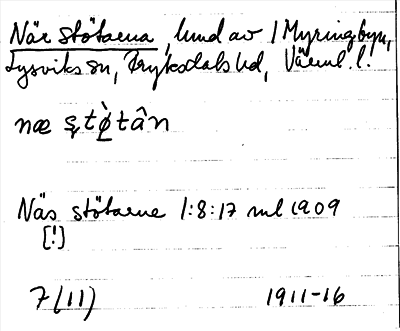 När stötarna, hmd av 1 Myringbyn,
Lysviks sn, Fryksdals hd, Värml. l.
næ ştø̀tân
Näs stötarne 1:8:17 ml 1909
[!]
7(11) 1911-16